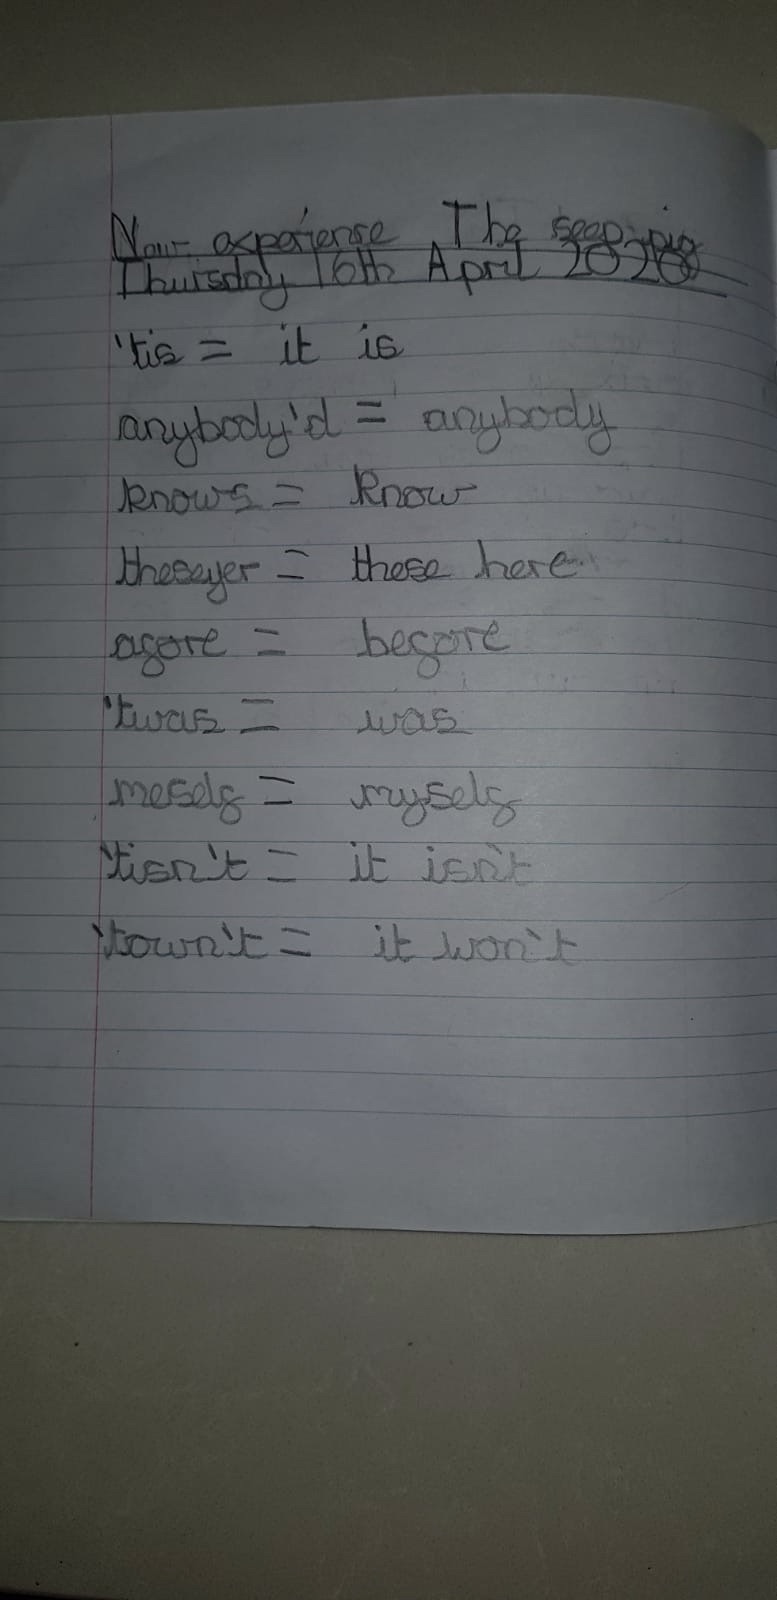 Nour experiense The seep-pig
Thursday 16th April 2020
'tis = it is
anybody'd = anybody
knows = know
theseyer = these here
afore = before
'twas = was
meself = myself
'tisn't = it isn't
'town't = it won't